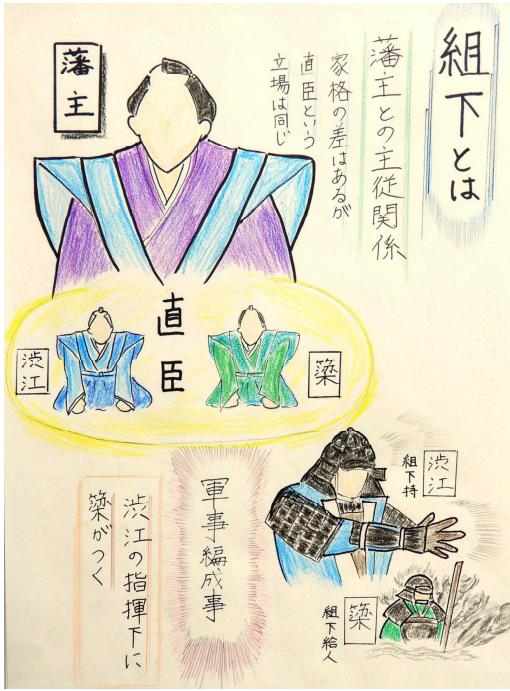 組下とは
藩主との主従関係
家格の差はあるが
直臣という
立場は同じ
藩主
直臣
渋江
簗
軍事編成事
渋江の指揮下に
簗がつく
渋江
組下持
簗
組下給人